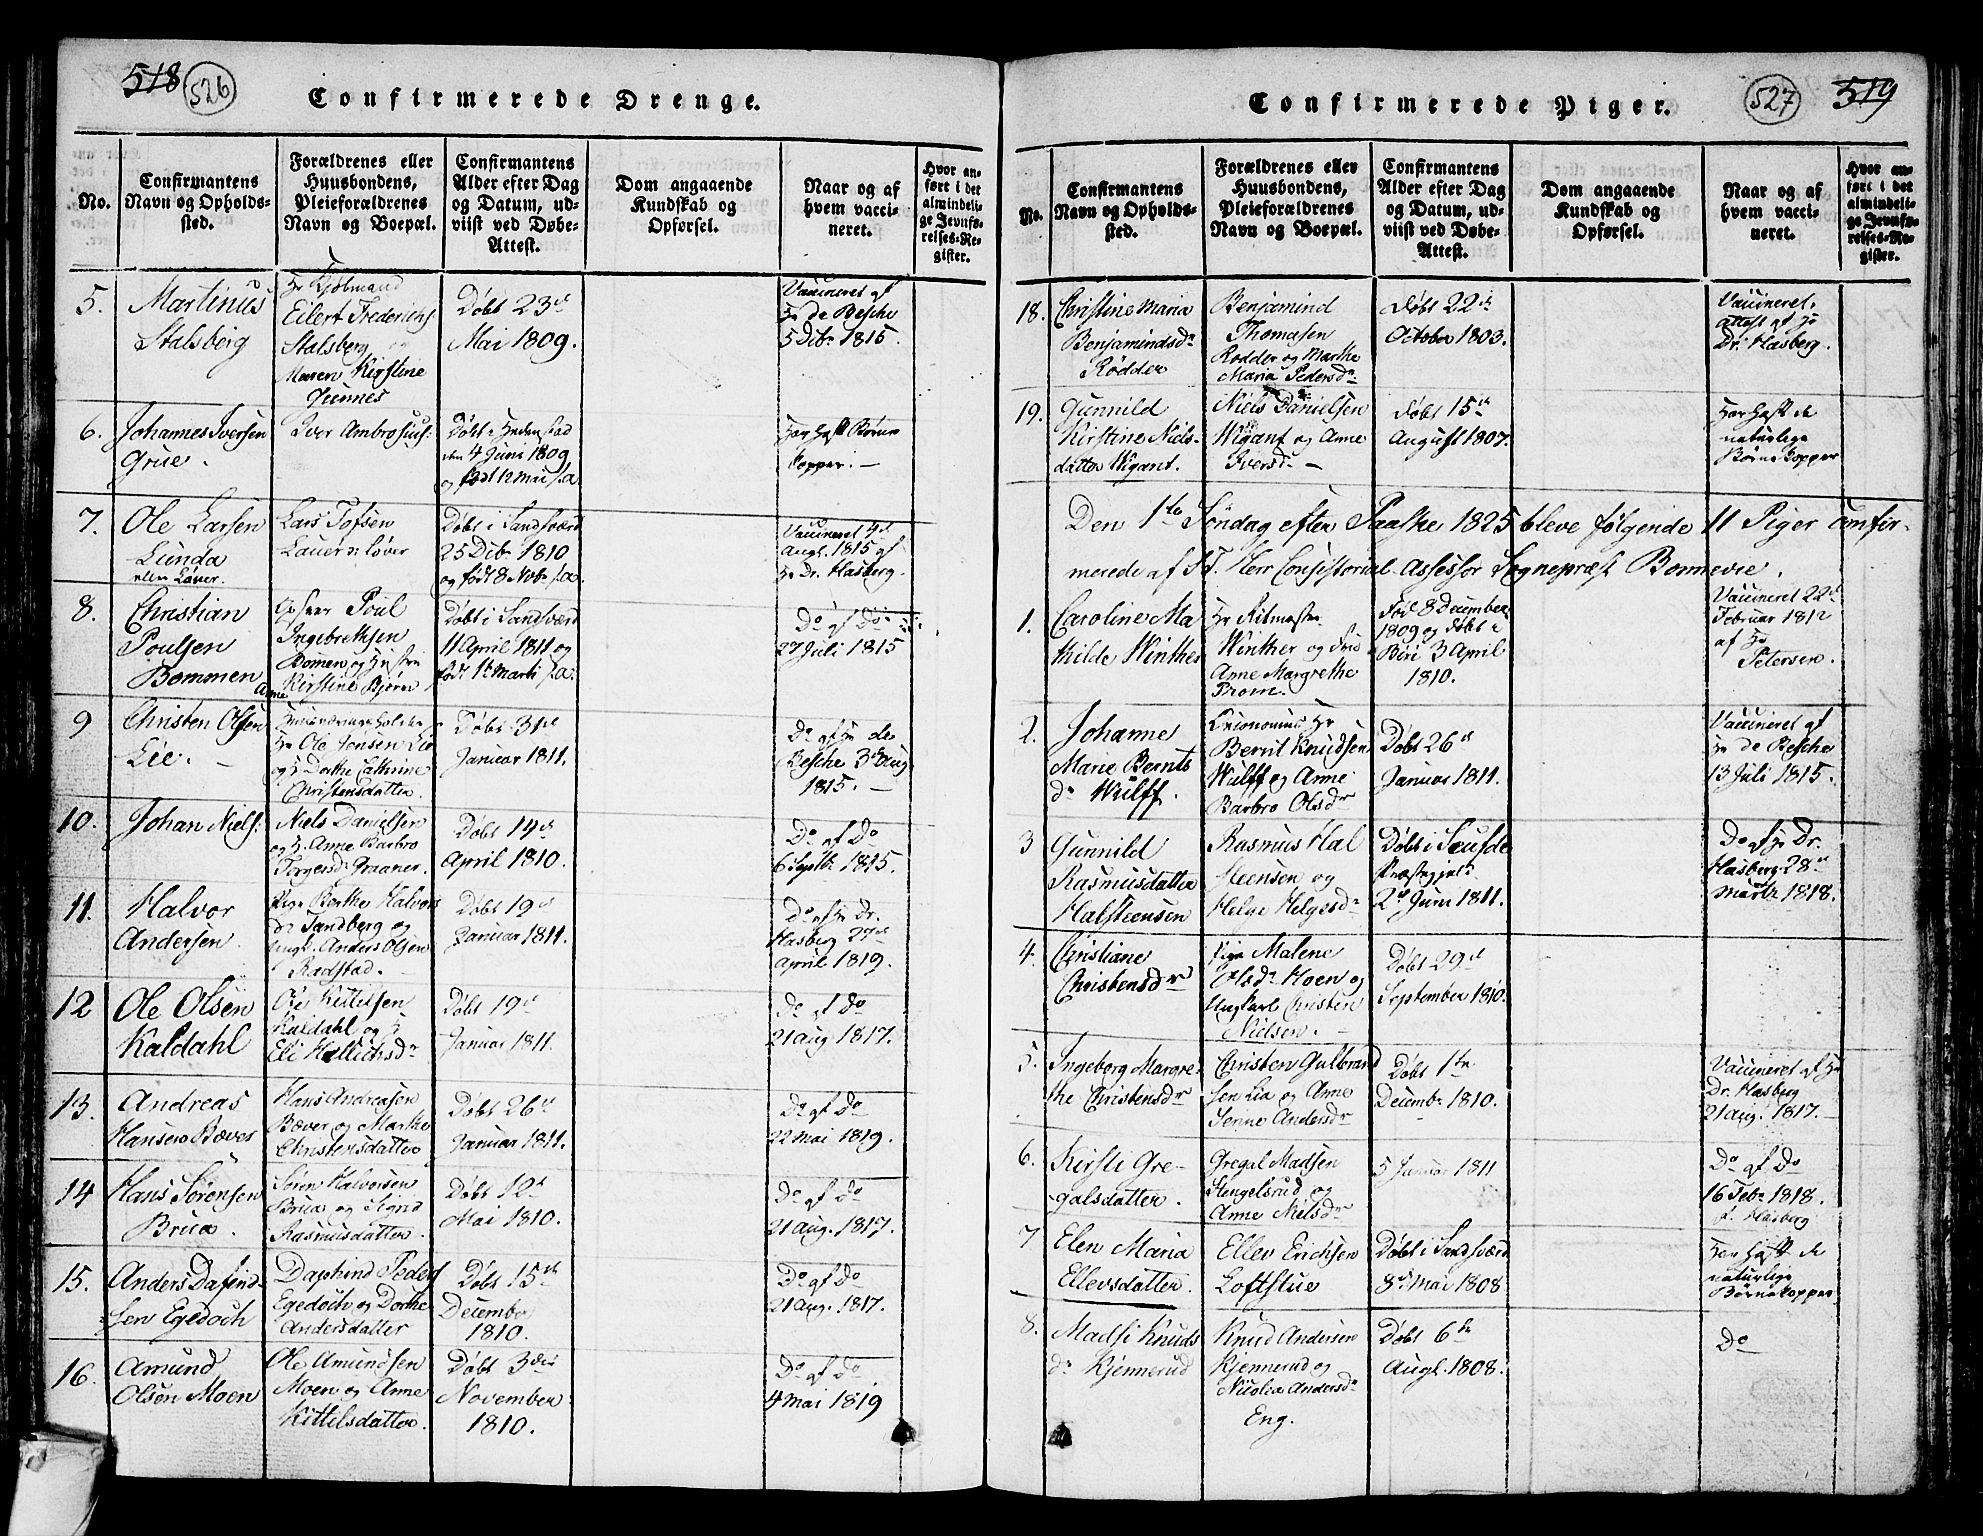 518 526
Confirmerede Drenge.
No.
Confirmantens
Navn og Opholds-
sted.
Forældrenes eller
Huusbondens,
Pleieforældrenes
Navn og Boepæl.
Confirmantens
Alder efter Dag
og Datum, ud-
viist ved Døbe-
Attest.
Dom angaaende
Kundskab og
Opførsel.
Naar og af
hvem vacci-
neret.
Hvor an-
ført i det
almindeli-
ge Jevnfø-
relses-Re-
gister.
5.
Martinus
Stalsberg
Hr
Eilert Frederichs
Stalsberg og
Maren Kirstine
Døbt 23de
Mai 1809.
Vaccineret af
Hr de Besche
5 Dibr 1815.
6.
Johannes Iversen
Grue.
Iver Ambrosius:
Døbt i Hedenstad
den 4 Juni 1809
og født 12 Mai s.a.
Har haft Børne
kopper. —
7.
Ole Larsen
Lunda
ellr Løver.
Lars Tofsen
Døbt i Sandsværd
25 Dibr 1810
og født 8 Nobr s.a.
Vaccineret 4de
Augt. 1815 af
Hr Dr. Hasberg.
8.
Christian
Poulsen
Bommen
Poul
Ingebrethsen
Bomen og Hustru
Anne Kirstine Bjørn
Døbt i Sandsværd
11 April 1811 og
født 1t Marti s.a.
Do af Do
27 Juli 1815
9
Christen Olsen
Lie. —
Hr Ole Jensen Lie
og H Dorthe Cathrine
Christensdatter.
Døbt 31te
Januar 1811.
Do af Hr de
Besche 3de Aug
1815. —
10.
Johan Niels:
Niels Danielsen
og H. Anne Barbro
Torgersdr Graaner.
Døbt 14de
April 1810.
Do af Do
6 Septbr 1815.
11.
Halvor
Andersen.
Pige Berthe Halvors
dr Sandberg og
Ungk. Anders Olsen
Radstad. —
Døbt 19de
Januar 1811.
Do af Hr Dr.
Hasberg 27de
April 1819.
12
Ole Olsen
Kaldahl
Ole Kittelsen
Kaldahl og H
Eli Hellichsdr
Døbt 19de
Januar 1811.
Do af Do
21 Aug 1817.
13.
Andreas
Hansen Bæver
Hans Andreasen
Bæver og Marthe
Christensdatter
Døbt 26de
Januar 1811.
Do af Do
22 Mai 1819.
14
Hans Sørensen
Brua.
Søren Halvorsen
Brua og Sigrid
Rasmusdatter.
Døbt 12te
Mai 1810.
Do af Do
21 Aug. 1817.
15.
Anders Dafind-
sen Egedoch
Daphind Peders
Egedoch og Dorthe
Andersdatter
Døbt 15de
December
1810.
Do af Do
21 Aug. 1817.
16.
Amund
Olsen Moen
Ole Amundsen
Moen og Anne
Kittilsdatter.
Døbt 3die
November
1810.
Do af Do
4 Mai 1819
Confirmerede Piger.
527 519
No.
Confirmantens
Navn og Opholds-
sted.
Forældrenes eller
Huusbondens,
Pleieforældrenes
Navn og Boepæl.
Confirmantens
Alder efter Dag
og Datum, ud-
viist ved Døbe-
Attest.
Dom angaaende
Kundskab og
Opførsel.
Naar og af
hvem vacci-
neret.
Hvor an-
ført i det
almindeli-
ge Jevnfø-
relses-Re-
gister.
18.
Christine Maria
Benjamindsdr
Rødder
Benjamind
Thomasen
Rødder og Marthe
Maria Pedersdr
Døbt 22de
October 1803.
Vaccineret.
attest af Hr
Dr. Hasberg.
19.
Gunnild
Kirstine Niels-
datter Wigant.
Niels Danielsen
Wigant og Anne
Iversdr —
Døbt 15de
August 1807.
Har haft de
naturlige
Børnekopper
Den 1te Søndag efter Paaske 1825 bleve følgende 11 Piger confir-
merede af S.T. Herr Consistorial-Assessor Sognepræst Bonnevie.
1.
Caroline Ma
thilde Winther
Hr Ritmester
Winther og Frue
Anne Margrethe
Prom.
Fød 8 December
1809 og døbt i
Biri 3 April
1810.
Vaccineret 22de
Februar 1812
af Hr
Petersen.
2.
Johanne
Marie Bernts
dr Wulff.
Hr
Bernt Knudsen
Wulff og Anne
Barbro Olsdr
Døbt 26de
Januar 1811.
Vaccineret af
Hr de Besche
13 Juli 1815.
3
Gunnild
Rasmusdatter
Halsteensen
Rasmus Hal
steensen og
Helge Helgesdr
Døbt i Seufde
Præstegjeld
2de Juni 1811.
Do af Hr Dr.
Hasberg 28de
Martz 1818.
4.
Christiane
Christensdr
Pige Malene
Olsdr Moen og
Ungkarl Christen
Nielsen. —
Døbt 29de
September 1810.
5.
Ingeborg Margre-
the Christensdr
Christen Gulbrand
sen Lia og Anne
Senne Andersdr
Døbt 1te
Decembr 1810.
Vaccineret af Hr
Dr. Hasberg
21 Aug. 1817.
6.
Kirsti Gre-
galsdatter.
Gregal Madsen
Stengelsrud og
Anne Nielsdr
5 Januar 1811
Do af Do
16 Febr 1818.
Hasberg
7
Elen Maria
Ellevsdatter.
Ellev Erichsen
Loftstue
Døbt i Sandsværd
8de Mai 1808
Har haft de
naturlige
Børnekopper
8.
Madsi Knuds
dr Kjennerud
Knud Andersen
Kjennerud og
Nicolea Andersdr
Eng.
Døbt 6te
Augt. 1808.
Do